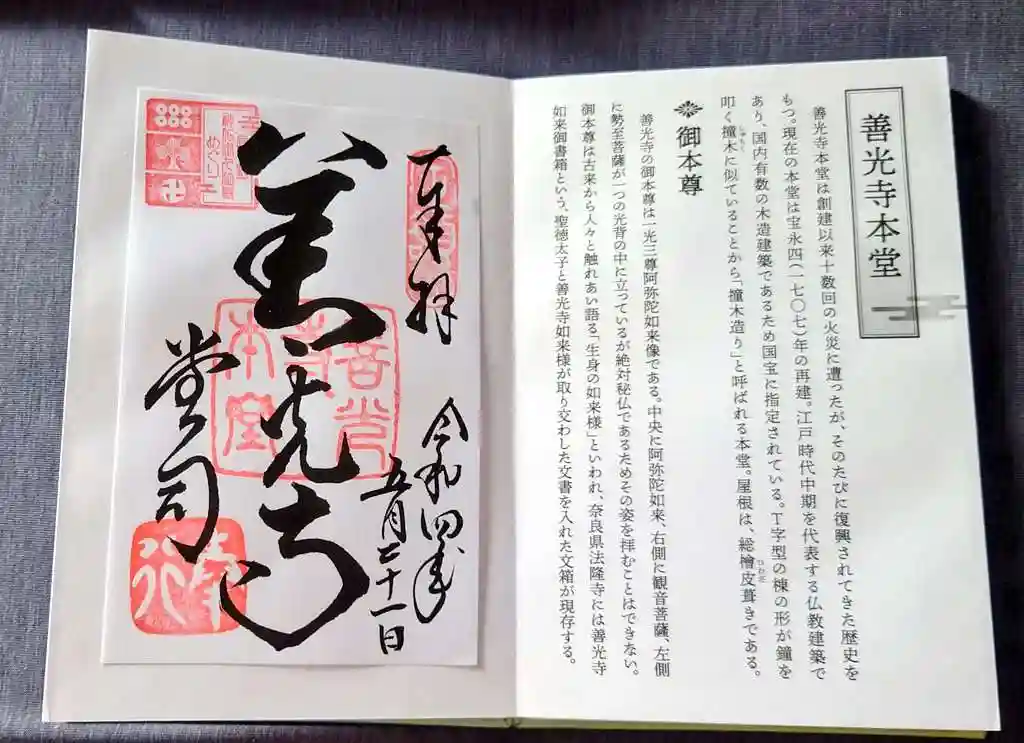 善光寺本堂
善光寺本堂は創建以来十数回の火災に遭ったが、そのたびに復興されてきた歴史を
もつ。現在の本堂は宝永四(一七〇七)年の再建。江戸時代中期を代表する仏教建築で
あり、国内有数の木造建築であるため国宝に指定されている。T字型の棟の形が鐘を
叩く撞木に似ていることから「撞木造り」と呼ばれる本堂。屋根は、総檜皮葺きである。
しゅもく
ひわだ
御本尊
善光寺の御本尊は一光三尊阿弥陀如来像である。中央に阿弥陀如来、右側に観音菩薩、左側
に勢至菩薩が一つの光背の中に立っているが絶対秘仏であるためその姿を拝むことはできない。
御本尊は古来から人々と触れあい語る「生身の如来様」といわれ、奈良県法隆寺には善光寺
如来御書箱という、聖徳太子と善光寺如来様が取り交わした文書を入れた文箱が現存する。
奉拝
令和四年
五月二十一日
善光寺
堂司
善光
寺
本堂
めぐり
卍